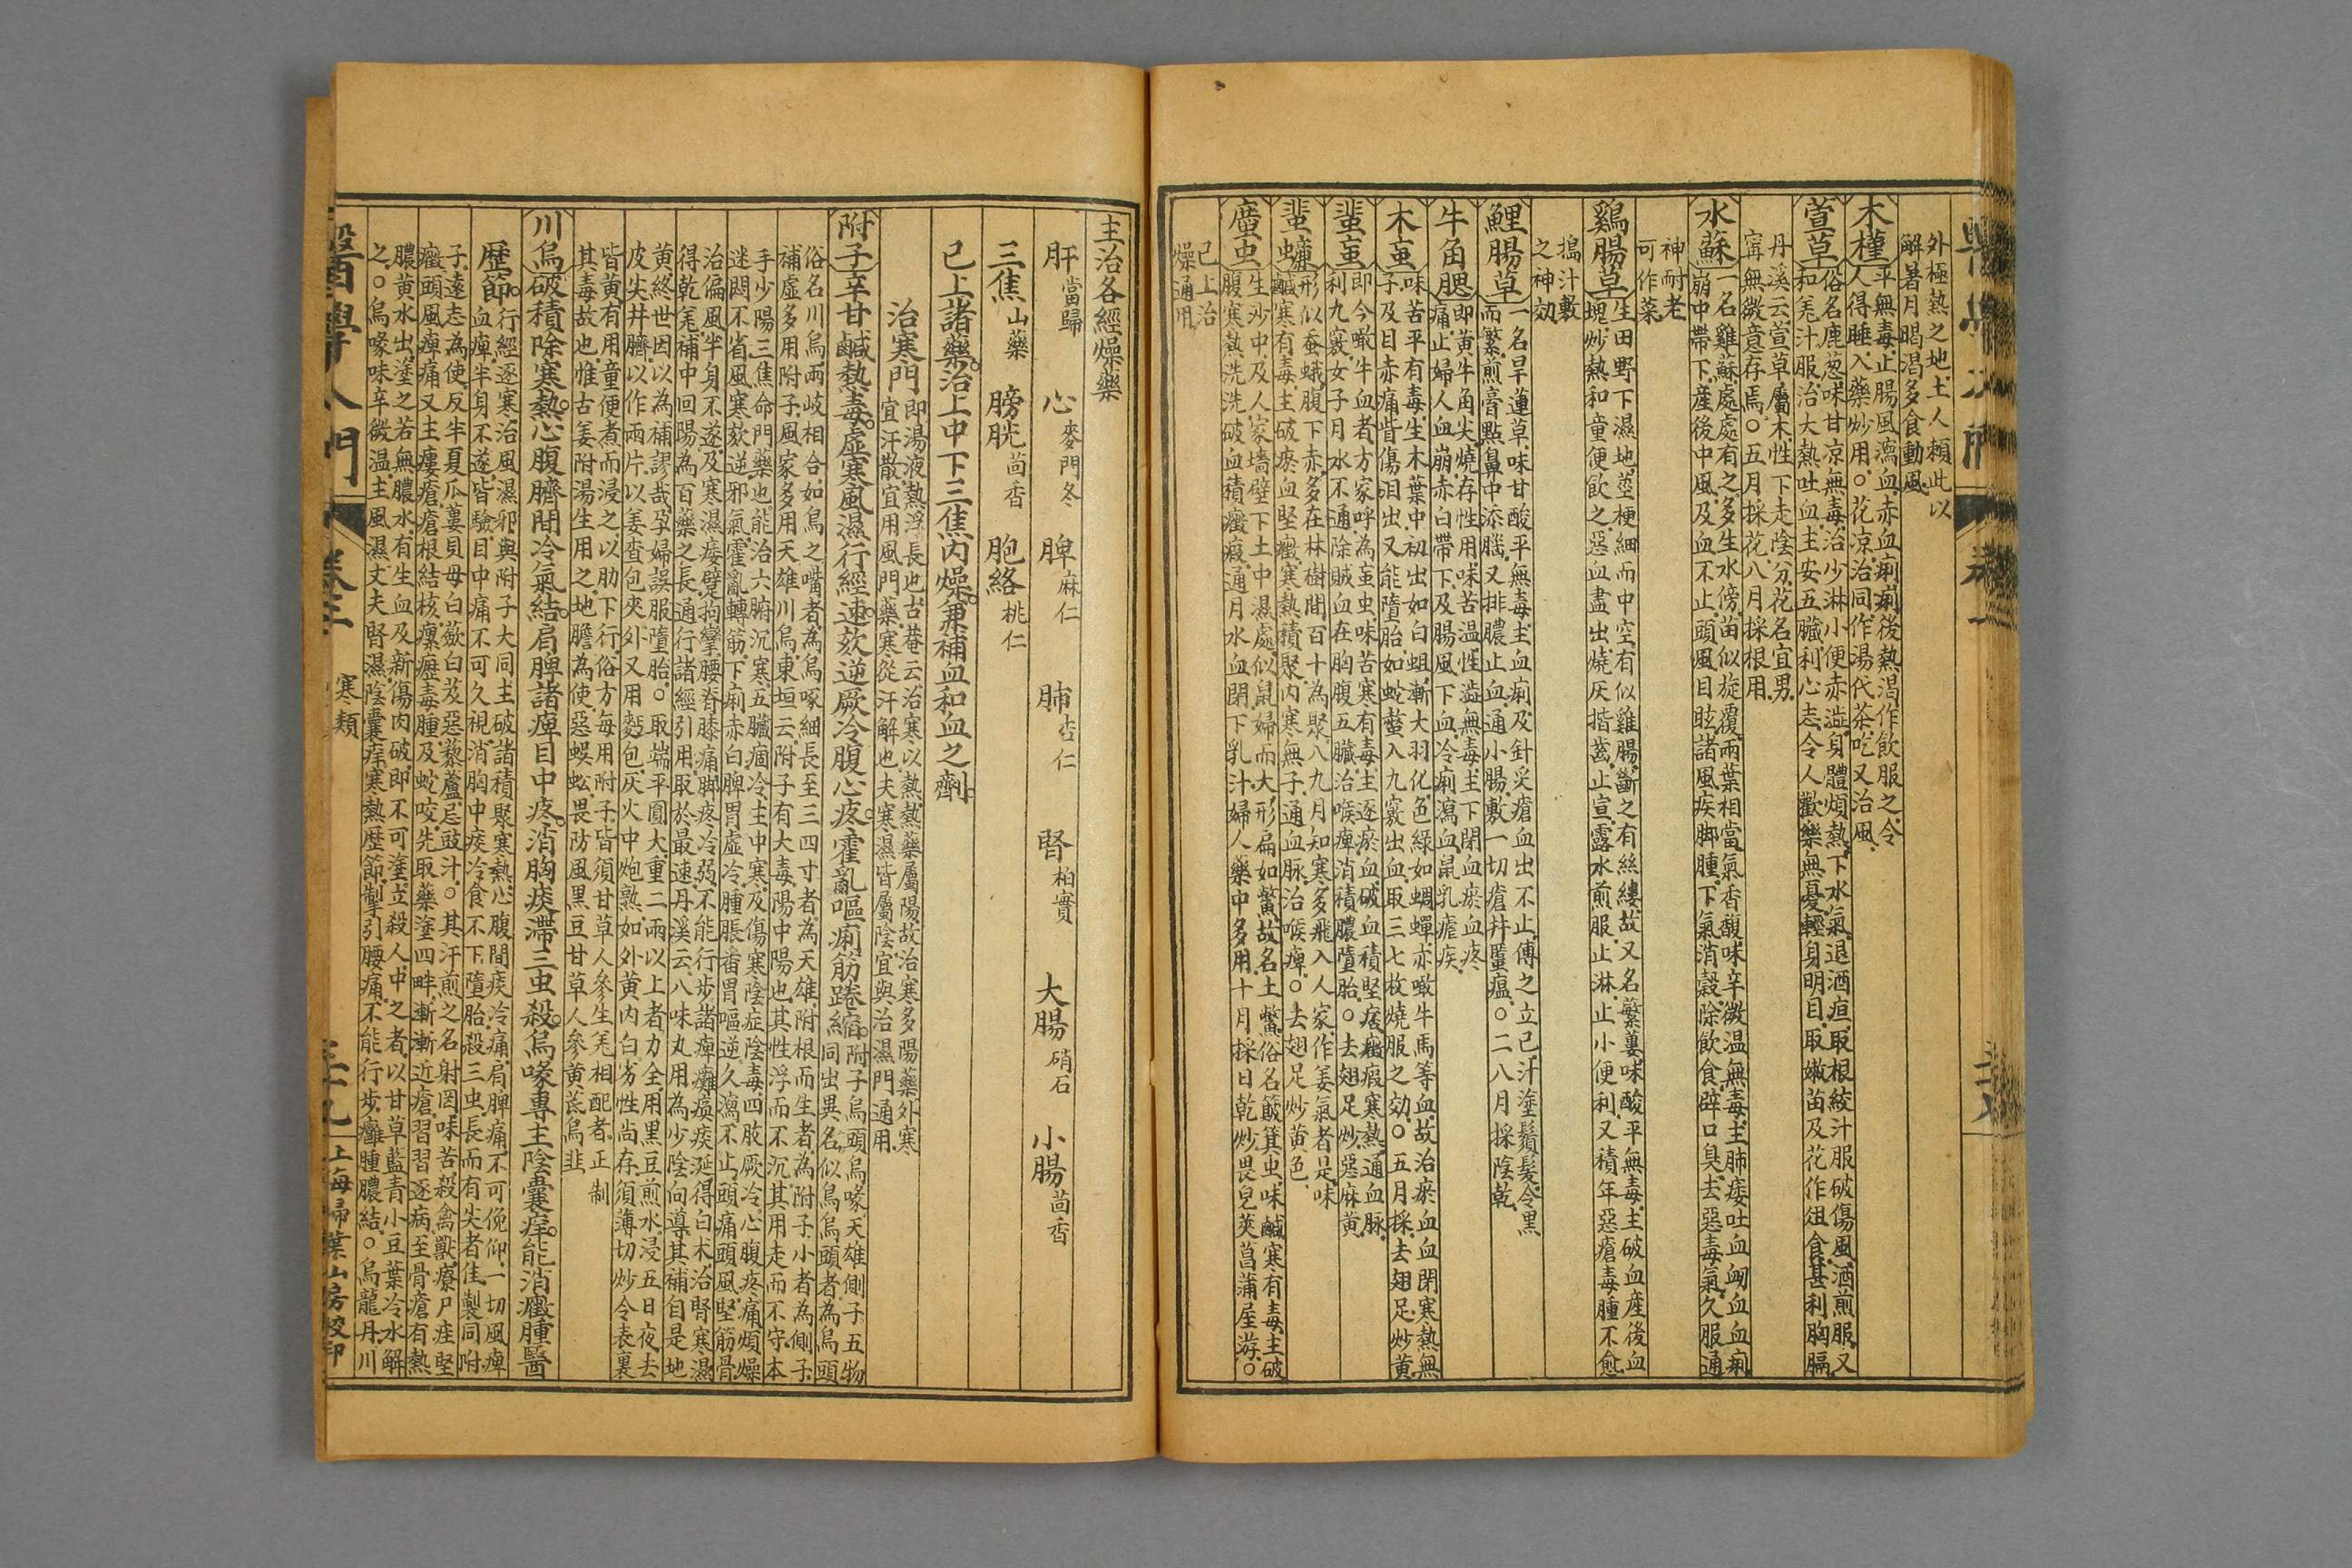 外極熱之地土人賴此以
解暑月暍渴多食動風
木槿
平無毒止腸風瀉血赤血痢痢後熱渴作飲服之令
人得睡入藥炒用○花凉治同作湯代茶吃又治風
萱草
俗名鹿葱味甘凉無毒治少淋小便赤澁身體煩熱下水氣退酒疸取根絞汁服破傷風酒煎服又
和羌汁服治大熱吐血主安五臟利心志令人歡樂無憂輕身明目取嫩苗及花作俎食甚利胸膈
丹溪云萱草屬木性下走陰分花名宜男
寗無微意存焉○五月採花八月採根用
水蘇
一名雞蘇處處有之多生水傍苗似旋覆兩葉相當氣香馥味辛微温無毒主肺痿吐血衂血血痢
崩中帶下產後中風及血不止頭風目眩諸風疾脚腫下氣消穀除飲食辟口臭去惡毒氣久服通
神耐老
可作菜
鷄腸草
生田野下濕地莖梗細而中空有似雞腸斷之有絲縷故又名蘩蔞味酸平無毒主破血產後血
塊炒熱和童便飲之惡血盡出燒灰揩齒止宣露水煎服止淋止小便利又積年惡瘡毒腫不愈
搗汁敷
之神効
鯉腸草
一名旱蓮草味甘酸平無毒主血痢及針灸瘡血出不止傅之立已汁塗鬚髮令黑
而繁煎膏點鼻中添腦又排膿止血通小腸敷一切瘡并蠶瘟○二八月採陰乾
牛角腮
即黄牛角尖燒存性用味苦温性澁無毒主下閉血瘀血疼
痛止婦人血崩赤白帶下及腸風下血冷痢瀉血鼠乳瘧疾
木䖟
味苦平有毒生木葉中初出如白蛆漸大羽化色綠如蜩蟬亦噉牛馬等血故治瘀血血閉寒熱無
子及目赤痛眥傷泪出又能墮胎如蛇螫入九竅出血取三七枚燒服之効○五月採去翅足炒黄
蜚䖟
即今噉牛血者方家呼為䖟虫味苦寒有毒主逐瘀血破血積堅痞癥瘕寒熱通血脉
利九竅女子月水不通除賊血在胸腹五臟治喉痺消積膿墮胎○去翅足炒惡麻黄
蜚蠊
形似蚕蛾腹下赤多在林樹間百十為聚八九月知寒多飛入人家作姜氣者是味
鹹寒有毒主破瘀血堅癥寒熱積聚内寒無子通血脉治喉痺○去翅足炒黄色
䗪虫
生沙中及人家墻壁下土中濕處似鼠婦而大形扁如鱉故名土鱉俗名簸箕虫味鹹寒有毒主破
腹寒熱洗洗破血積癥瘕通月水血閉下乳汁婦人藥中多用十月採日乾炒畏皂莢菖蒲屋游○
已上治
燥通用
主治各經燥藥
肝 當歸 心 麥門冬 脾 麻仁 肺 杏仁 腎 柏實 大腸 硝石 小腸 茴香
三焦 山藥 膀胱 茴香 胞絡 桃仁
已上諸藥治上中下三焦内燥兼補血和血之劑
治寒門
即湯液熱浮長也古菴云治寒以熱熱藥屬陽故治寒多陽藥外寒
宜汗散宜用風門藥寒從汗解也夫寒濕皆屬陰宜與治濕門通用
附子辛甘鹹熱毒虛寒風濕行經速欬逆厥冷腹心疼霍亂嘔痢筋踡縮
附子烏頭烏喙天雄側子五物
同出異名似烏烏頭者為烏頭
俗名川烏兩岐相合如烏之嘴者為烏啄細長至三四寸者為天雄附根而生者為附子小者為側子
補虛多用附子風家多用天雄川烏東垣云附子有大毒陽中陽也其性浮而不沉其用走而不守本
手少陽三焦命門藥也能治六腑沉寒五臟痼冷主中寒及傷寒陰症陰毒四肢厥冷心腹疼痛煩燥
迷悶不省風寒欬逆邪氣霍亂轉筋下痢赤白脾胃虛冷腫脹番胃嘔逆久瀉不止頭痛頭風堅筋骨
治偏風半身不遂及寒濕痿躄拘攣腰脊膝痛脚疼冷弱不能行步諸痺癱瘓疾涎得白术治腎寒濕
得乾羌補中回陽為百藥之長通行諸經引用取於最速丹溪云八味丸用為少陰向導其補自是地
黄終世因以為補謬哉孕婦誤服墮胎○取端平圓大重二兩以上者力全用黑豆煎水浸五日夜去
皮尖并臍以作兩片以姜查包夾外又用麪包灰火中炮熟如外黄内白劣性尚存須薄切炒令表裏
皆黄有用童便煮而浸之以助下行俗方每用附子皆須甘草人參生羌相配者正制
其毒故也惟古姜附湯生用之地膽為使惡蜈蚣畏防風黑豆甘草人參黄芪烏韭
川烏破積除寒熱心腹臍間冷氣結肩脾諸痺目中疼消胸痰滯三虫殺烏喙專主陰囊痒能消癥腫醫
歷節
行經逐寒治風濕邪與附子大同主破諸積聚寒熱心腹間痰冷痛肩脾痛不可俛仰一切風痺
血痺半身不遂皆驗目中痛不可久視消胸中痰冷食不下墮胎殺三虫長而有尖者佳製同附
子遠志為使反半夏瓜蔞貝母白蘞白芨惡藜蘆忌豉汁○其汁煎之名射罔味苦殺禽獸療尸疰堅
癥頭風痺痛又主瘻瘡瘡根結核瘰癧毒腫及蛇咬先取藥塗四畔漸漸近瘡習習逐病至骨瘡有熱
膿黄水出塗之若無膿水有生血及新傷肉破即不可塗立殺人中之者以甘草藍青小豆葉冷水解
之○烏喙味辛微温主風濕丈夫腎濕陰囊痒寒熱歷節掣引腰痛不能行步癰腫膿結○烏龍丹川
醫學入門 卷三 寒類 三十九 上海掃葉山房校印